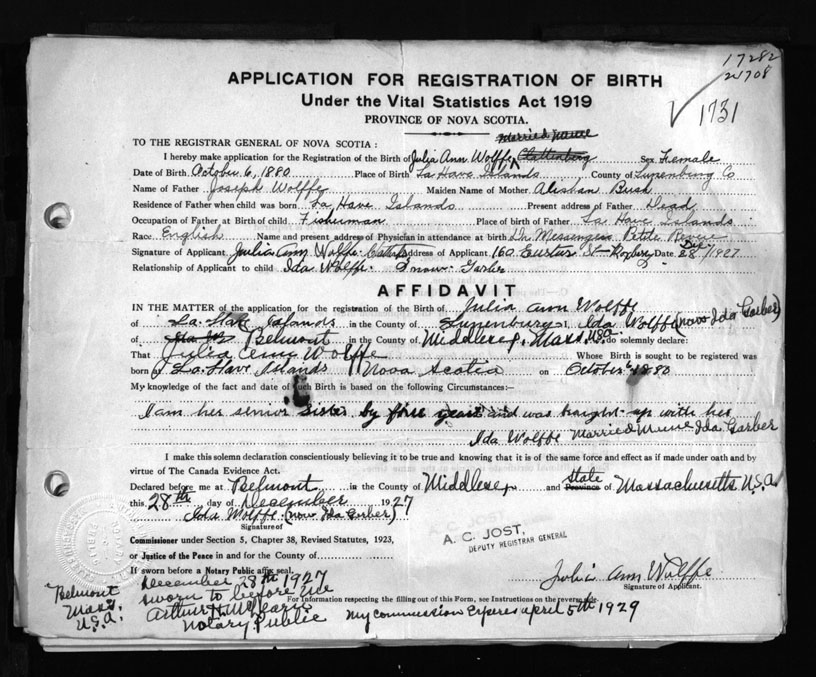 17282
21708
1731
APPLICATION FOR REGISTRATION OF BIRTH
Under the Vital Statistics Act 1919
PROVINCE OF NOVA SCOTIA.
Married Name
TO THE REGISTRAR GENERAL OF NOVA SCOTIA:
I hereby make application for the Registration of the Birth of Julia Ann Wolffe Sex Female
Date of Birth October 6, 1880 Place of Birth La Have Islands County of Lunenburg Co
Name of Father Joseph Wolffe Maiden Name of Mother Bush
Residence of Father when child was born La Have Islands Present address of Father Dead
Occupation of Father at Birth of child Fisherman Place of birth of Father La Have Islands
Race English Name and present address of Physician in attendance at birth Petite Riviere
Signature of Applicant Julia Ann Wolffe Address of Applicant 160 Eustis St Roxbury Date Dec 28/1927
Relationship of Applicant to child Ida Wolffe. Garber
AFFIDAVIT
IN THE MATTER of the application for the registration of the Birth of Julia Ann Wolffe
of La Have Islands in the County of Lunenburg I, Ida Wolffe (now Ida Garber)
of Belmont in the County of Middlesex, Mass, USA do solemnly declare:
That Julia Ann Wolffe Whose Birth is sought to be registered was
born at La Have Islands Nova Scotia on October 6 1880
My knowledge of the fact and date of such Birth is based on the following Circumstances:—
I am her senior sister by five years and was brought up with her
Ida Wolffe Married Name Ida Garber
I make this solemn declaration conscientiously believing it to be true and knowing that it is of the same force and effect as if made under oath and by
virtue of The Canada Evidence Act.
Declared before me at Belmont in the County of Middlesex and State Province of Massachusetts U.S.A
this 28th day of December 1927
Ida Wolffe (now Ida Garber)
Signature of
A. C. JOST,
DEPUTY REGISTRAR GENERAL
Commissioner under Section 5, Chapter 38, Revised Statutes, 1923,
or Justice of the Peace in and for the County of
If sworn before a Notary Public affix seal.
December 28th 1927
Julia Ann Wolffe
Signature of Applicant.
Belmont
Mass.
U.S.A.
sworn to before me
For Information respecting the filling out of this Form, see Instructions on the reverse side.
Arthur H.
Notary Public
My commission expires april 5th 1929